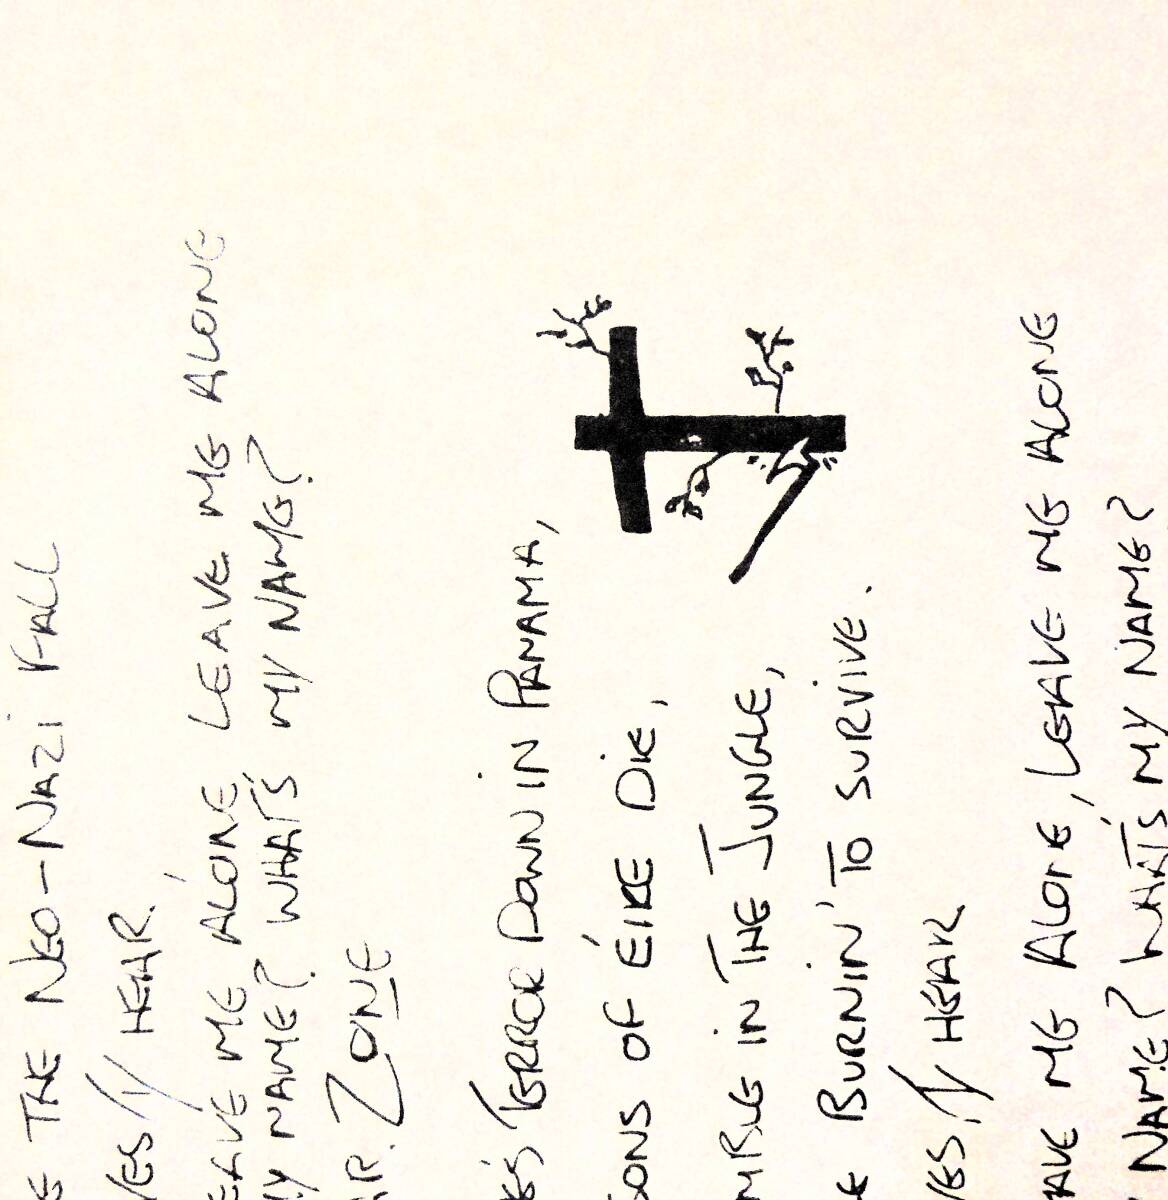 THE NEO-NAZI FALL
I HEAR.
ME ALONE LEAVE ME ALONE
NAME? WHAT'S MY NAME?
ZONE
TERROR DOWN IN PANAMA,
OF ÉIRE DIE,
IN THE JUNGLE,
BURNIN' TO SURVIVE.
I HEAR
ME ALONE, LEAVE ME ALONE
NAME? WHAT'S MY NAME?